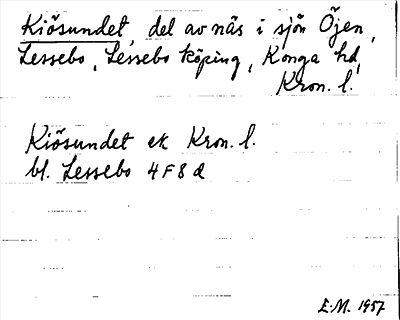 Kiösundet, del av näs i sjön Öjen,
Lessebo, Lessebo köping, Konga hd,
Kron. l.
Kiösundet ek Kron. l.
bl. Lessebo 4 F 8 d
E.M. 1957